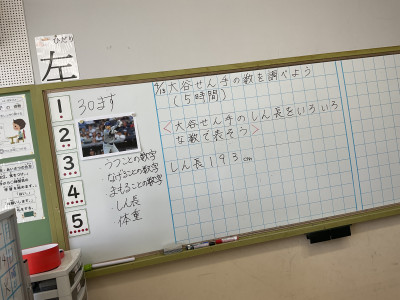 ひだり
左
1
2
3
4
5
30ます
うつことの数字
なげることの数字
まもることの数字
しん長
体重
大谷せん手の数を調べよう
(5時間)
<大谷せん手のしん長をいろいろ
な数で表そう>
しん長193cm